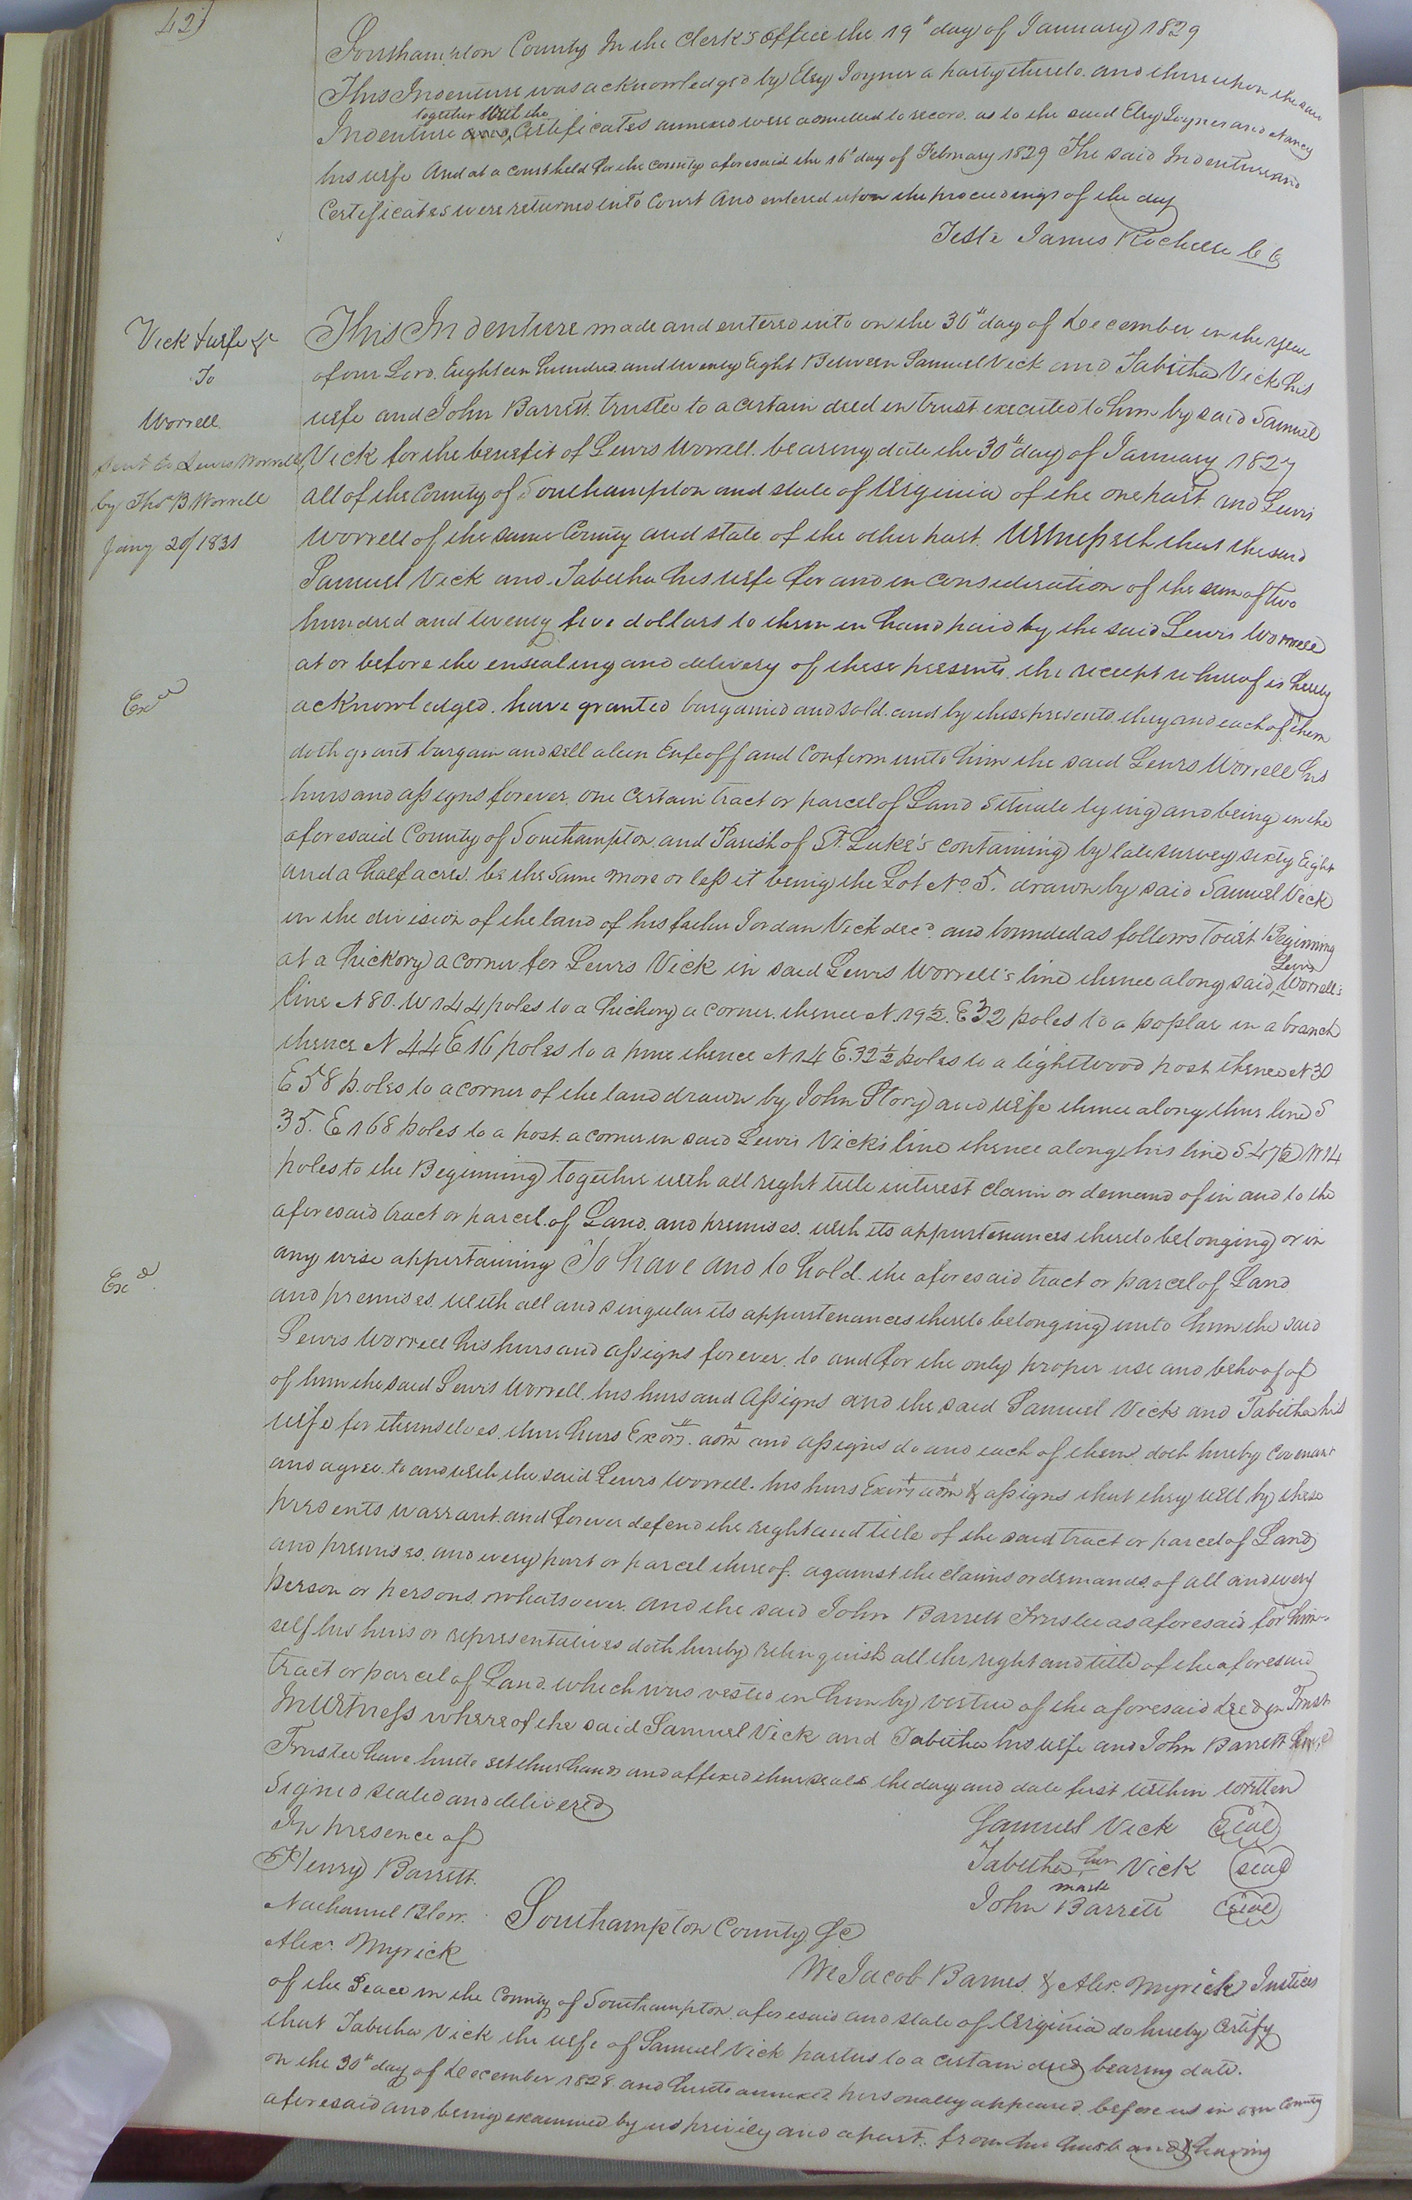 42)
Southampton County In the Clerk's office the 19th day of January 1829
This Indenture was acknowledged by Elsy Joyner a party thereto and thereupon the said
together With the
Indenture and Certificates annexed were admitted to record as to the said Elsy Joyner and Nancy
his wife And at a court held for the County aforesaid the 16th day of February 1829 The said Indenture and
Certificates were returned into Court And entered upon the proceedings of the day
Teste James Rochelle C C
Vick & wife &c
To
Worrell
sent to Lewis Worrell
by Thos B Worrell
Jany 20 1831
Exd
Exd
This Indenture made and entered into on the 30th day of December in the year
of our Lord Eighteen hundred and twenty Eight Between Samuel Vick and Tabitha Vick his
wife and John Barrett trustee to a certain deed in trust executed to him by said Samuel
Vick for the benefit of Lewis Worrell bearing date the 30th day of January 1827
all of the County of Southampton and state of Virginia of the one part and Lewis
Worrell of the same County and state of the other part Witnesseth that the said
Samuel Vick and Tabitha his wife for and in consideration of the sum of two
hundred and twenty five dollars to them in hand paid by the said Lewis Worrell
at or before the ensealing and delivery of these presents the receipt whereof is hereby
acknowledged have granted bargained and sold and by these presents they and each of them
doth grant bargain and sell alien Enfeoff and Confirm unto him the said Lewis Worrell his
heirs and assigns forever one certain tract or parcel of Land Situate lying and being in the
aforesaid County of Southampton and Parish of St Luke's containing by late survey sixty Eight
and a half acres be the same more or less it being the Lot No 5. drawn by said Samuel Vick
in the division of the land of his father Jordan Vick decd and bounded as follows Towit Beginning
at a hickory a corner for Lewis Vick in said Lewis Worrell's line thence along said Lewis Worrell's
line N 80. W 144 poles to a hickory a corner thence N. 19½. E 32 poles to a poplar in a branch
thence N 44 E 16 poles to a pine thence N 14 E. 32½ poles to a lightwood post thence N 30
E 58 poles to a corner of the land drawn by John Story and wife thence along their line S
35. E 168 poles to a post a corner in said Lewis Vick's line thence along his line S 47½ W 14
poles to the Beginning together with all right title interest claim or demand of in and to the
aforesaid tract or parcel of Land and premises with its appurtenances thereto belonging or in
any wise appertaining To have and to hold the aforesaid tract or parcel of Land
and premises with all and singular its appurtenances thereto belonging unto him the said
Lewis Worrell his heirs and assigns forever to and for the only proper use and behoof of
of him the said Lewis Worrell his heirs and Assigns and the said Samuel Vick and Tabitha his
wife for themselves their heirs Exors. adm and assigns do and each of them doth hereby covenant
and agree to and with the said Lewis Worrell his heirs Exors adm & assigns that they will by these
presents warrant and forever defend the right and title of the said tract or parcel of Land
and premises and every part or parcel thereof against the claims or demands of all and every
person or persons whatsoever and the said John Barrett Trustee as aforesaid for him-
self his heirs or representatives doth hereby relinquish all the right and title of the aforesaid
tract or parcel of Land which was vested in him by virtue of the aforesaid deed in Trust
In Witness whereof the said Samuel Vick and Tabitha his wife and John Barrett
Trustee have hereto set their hands and affixed their seals the day and date first within written
Signed sealed and delivered
In presence of
Henry Barrett.
Nathaniel Blow
Alexr Myrick
Samuel Vick (seal)
Tabitha her Vick (seal)
mark
John Barrett (seal)
Southampton County Sc
We Jacob Barnes & Alexr Myrick Justices
of the Peace in the County of Southampton aforesaid and state of Virginia do hereby Certify
that Tabitha Vick the wife of Samuel Vick parties to a certain deed bearing date
on the 30th day of December 1828 and hereto annexed personally appeared before us in our County
aforesaid and being examined by us privily and apart from her husband & having